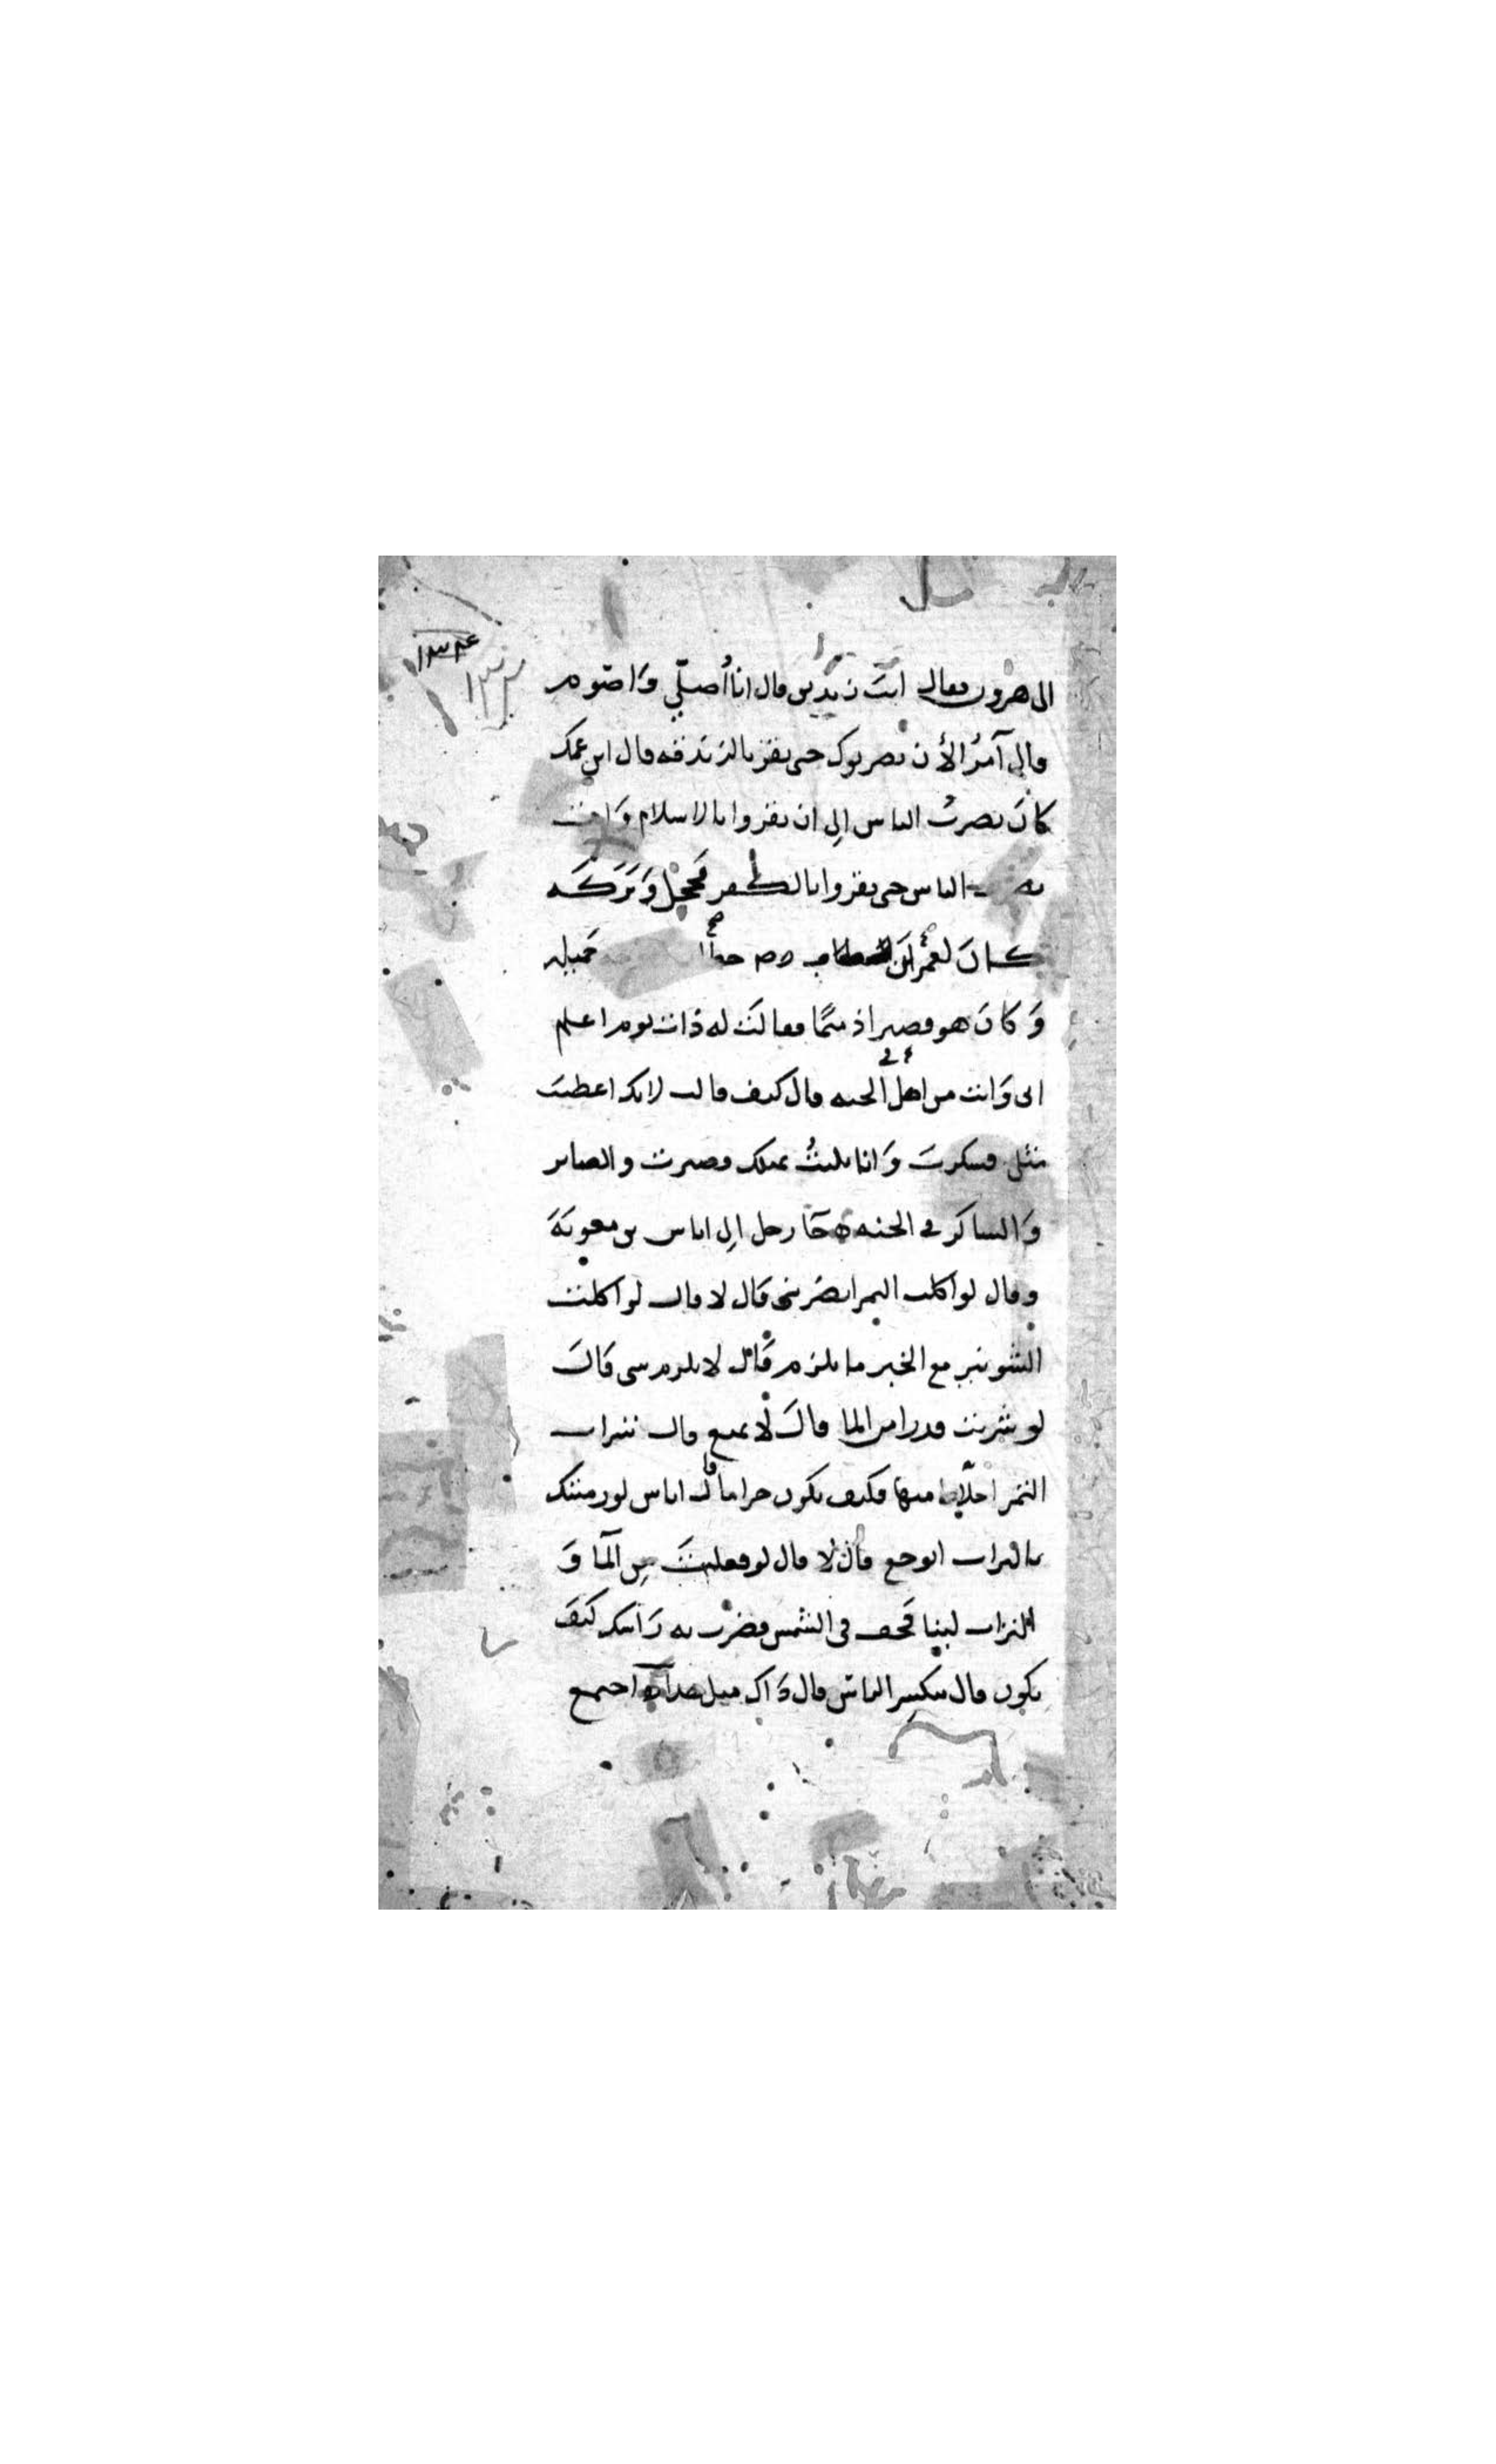 ١٣٣٤
١٣٢
الى هرون فقال انت زنديق قال انا اُصلّي وَاصَوم
قال آمُر الأن بضربوك حتى تقر بالزندقه قال ابن عمك
كانَ يضربُ الناس اِلى ان يقروا بالاسلام وَانت
تضرب الناس حتى يقروا بالكفر فخجل وَتَرَكَه
كانَ لعمرانَ بن حطان جميله
وَكانَ هو قصيرا ذميمًا فقالتَ له ذات يوم اعلم
انى وَانت من اهل الجنه قال كيف قالت لانك اعطيتَ
مثلى فشكرتَ وَانا بليتُ بمثلك فصبرت والصابر
وَالشاكر في الجنه ه جَآ رجل اِلى اياس بن معويَهَ
وقال لو اكلت التمر ايضَرنى قَال لا قال لو اكلت
الشونيز مع الخبز ما يلزم قَال لا يلزم شى قَالَ
لو شربت قدرا من الما قالَ لا يمنع قال شراب
التمر اخلاط منها فكيف يكون حراما قال اياس لو رميتك
بالتراب ايوجع قال لا قال لو فعلت مِن الَما وَ
التراب لبنا فَجف فى الشمس فضربت به رَاسك كَيفَ
يكون قال ينكسر الراس قال ذَاك مثل هذا ه اجتمع